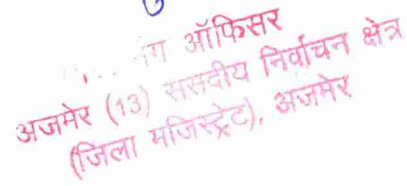 ऑफिसर
अजमेर (13) ससदीय निर्वाचन क्षेत्र
(जिला मजिस्ट्रेट), अजमेर